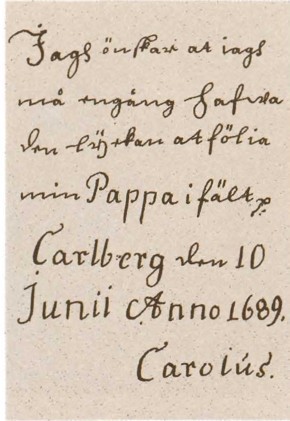 Jagh önskar at iagh
må engång hafwa
den lyckan at fölia
min Pappa i fält
Carlberg den 10
Junii Anno 1689.
Carolus.